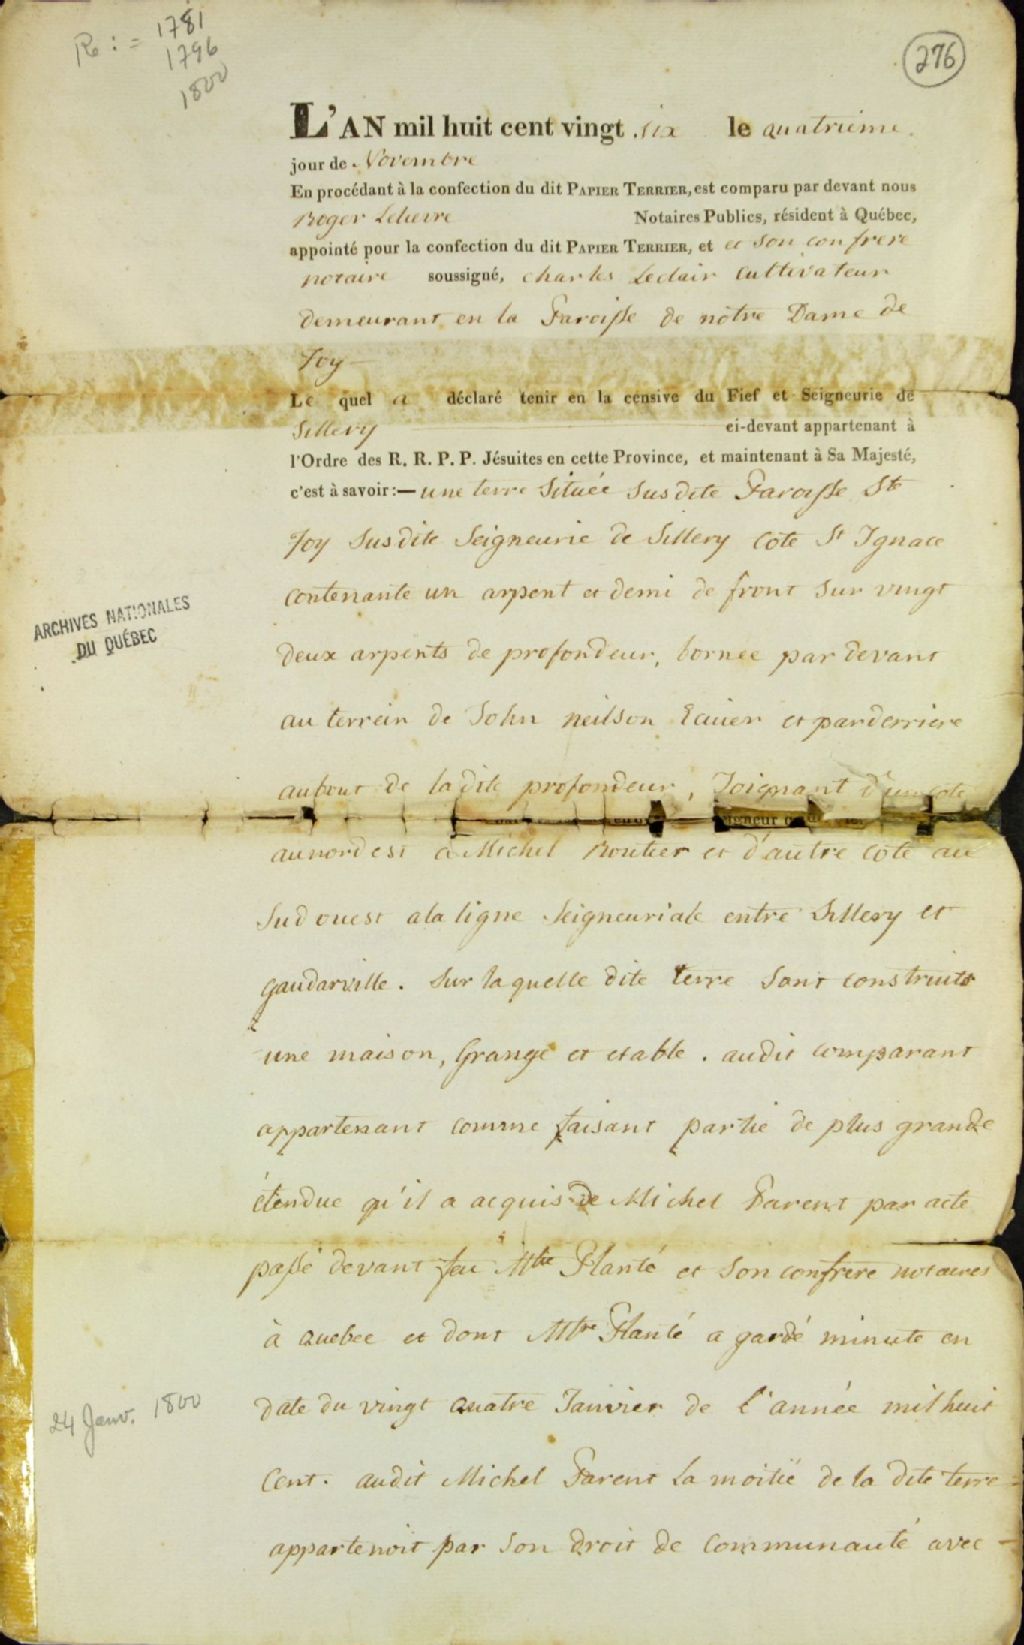 Re: = 1781
1796
1800
276
L'AN mil huit cent vingt six le quatrieme
jour de Novembre
En procédant à la confection du dit PAPIER TERRIER, est comparu par devant nous
Roger Lelievre Notaires Publics, résident à Québec,
appointé pour la confection du dit PAPIER TERRIER, et et son confrere
notaire soussigné, charles Leclair Cultivateur
demeurant en la Paroisse de nôtre Dame de
Foy
Le quel a déclaré tenir en la censive du Fief et Seigneurie de
Sillery ci-devant appartenant à
l'Ordre des R. R. P. P. Jésuites en cette Province, et maintenant à Sa Majesté,
c'est à savoir:—une terre Située Susdite Paroisse Ste
Foy Susdite Seigneurie de Sillery Cote St Ignace
contenante un arpent et demi de front Sur vingt
deux arpents de profondeur, bornee par devant
au terrein de John neilson Ecuier et parderriere
aubout de ladite profondeur, Joignant d'un coté
igneur
aunordest a Michel Routier et d'autre coté au
Sud ouest a la ligne Seigneuriale entre Sillery et
gaudarville. Sur laquelle dite terre Sont construits
une maison, Grange et etable. audit comparant
appartenant comme faisant partie de plus grande
étendue qu'il a acquis de Michel Parent par acte
passé devant feu Mtre Planté et Son confrere notaires
à quebec et dont Mtre Planté a gardé minute en
date du vingt quatre Janvier de l'année mil huit
Cent. audit Michel Parent La moitié de la dite terre
appartenoit par Son droit de Communauté avec
ARCHIVES NATIONALES
DU QUÉBEC
24 Janv. 1800